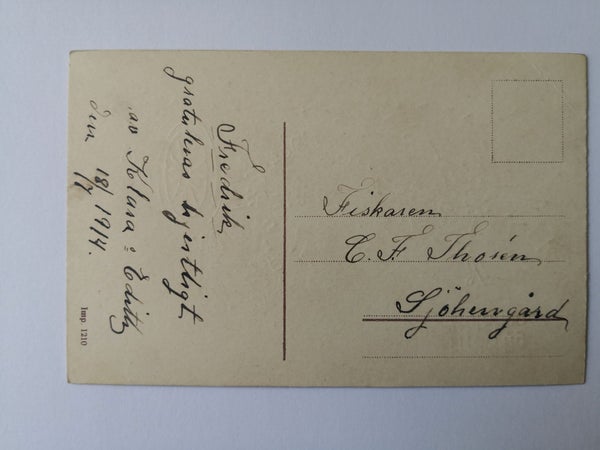 Fredrik
gratuleras hjertligt
av Klara o Edith
den 18/7 1914.
Fiskaren
C. F. Thorén
Sjöhemgård
Imp. 1210